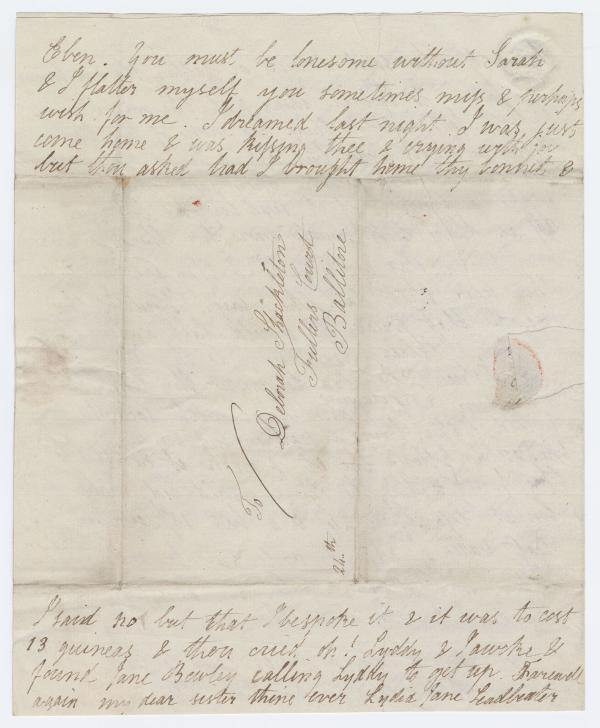 Eben. You must be lonesome without Sarah
& I flatter myself you sometimes miss & perhaps
wish for me. I dreamed last night I was just
come home & was kissing thee & crying with joy
but thou asked had I brought home thy bonnet &
To
Deborah Shackleton
Fullers Court
Ballitore
24th
I said no but that I bespoke it & it was to cost
13 guineas & thou cried oh! Lyddy & I awoke &
found Jane Bewley calling Lyddy to get up. Farewell
again my dear sister thine ever Lydia Jane Leadbeater